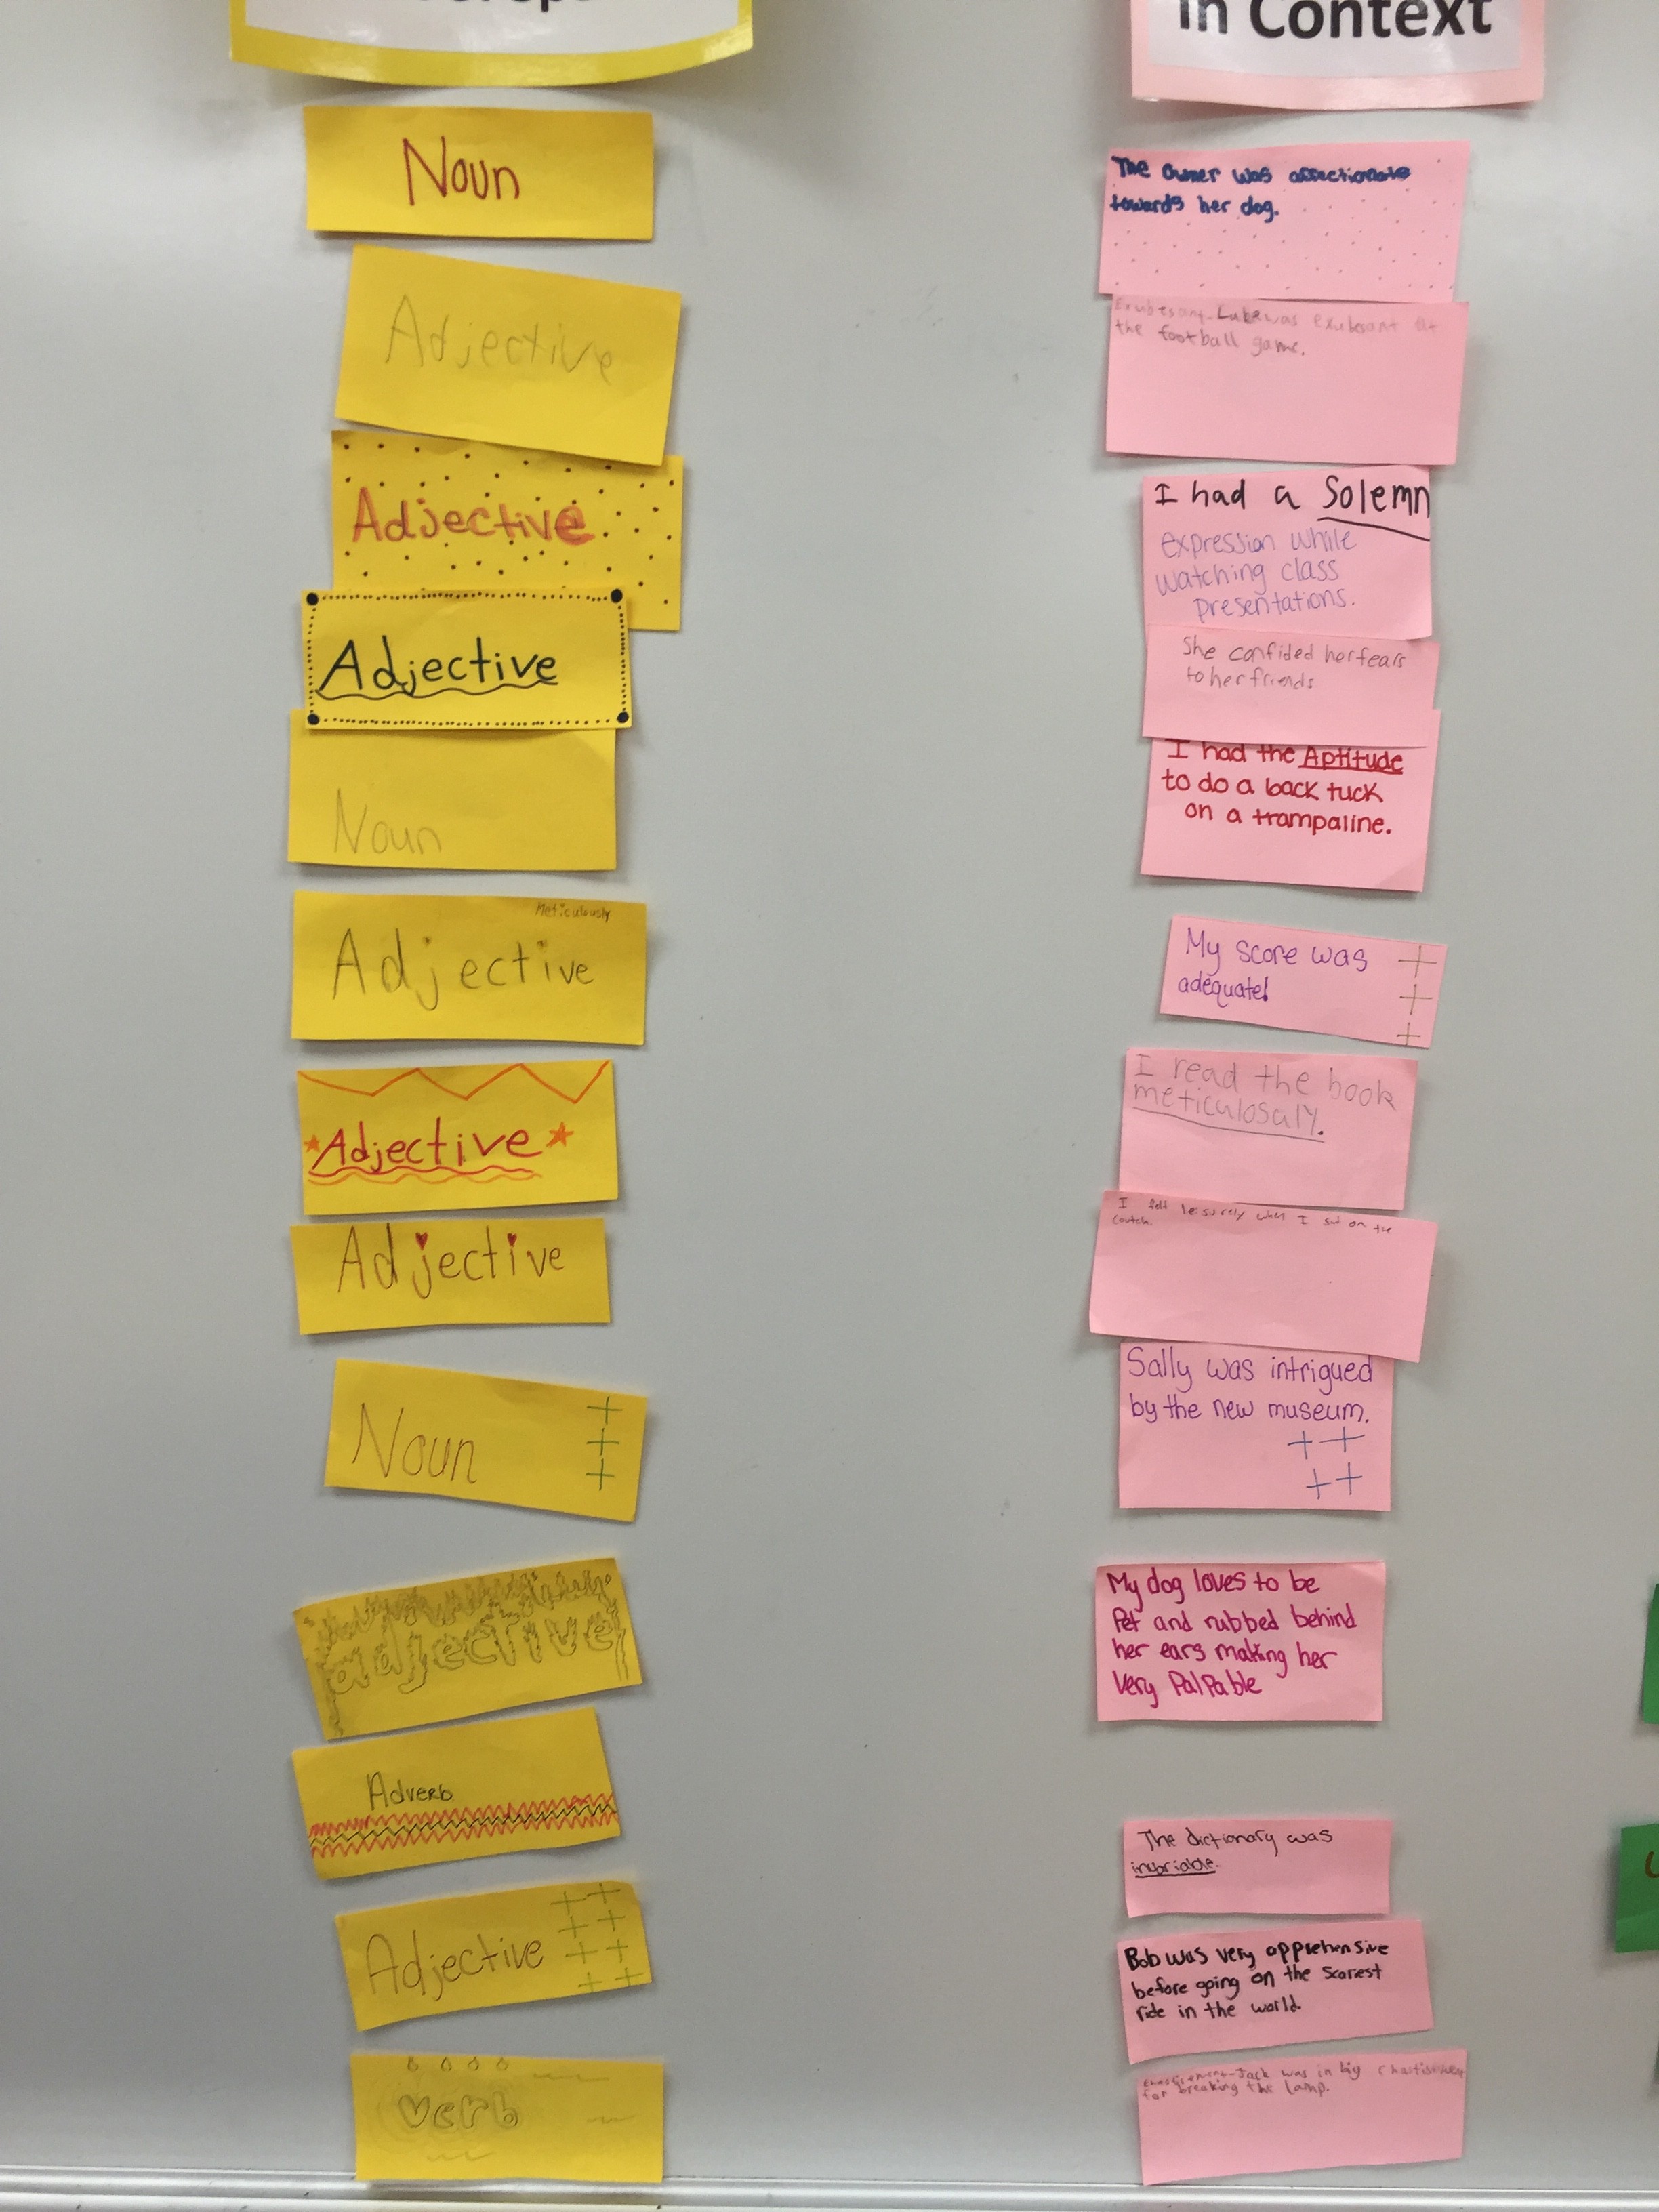 in Context
Noun
Adjective
Adjective
Adjective
Noun
Meticulously
Adjective
Adjective
Adjective
Noun
adjective
Adverb
Adjective
verb
The owner was affectionate
towards her dog.
Exubesant-Luke was exubesant at
the football game.
I had a Solemn
expression while
watching class
presentations.
She confided her fears
to her friends
I had the Aptitude
to do a back tuck
on a trampaline.
My score was
adequate!
I read the book
meticulosaly.
I felt leisurely when I sat on the
Sally was intrigued
by the new museum.
My dog loves to be
Pet and rubbed behind
her ears making her
very PalPable
The dictionary was
invariable.
Bob was very apprehensive
before going on the scariest
ride in the world.
Jack was in big
for breaking the lamp.